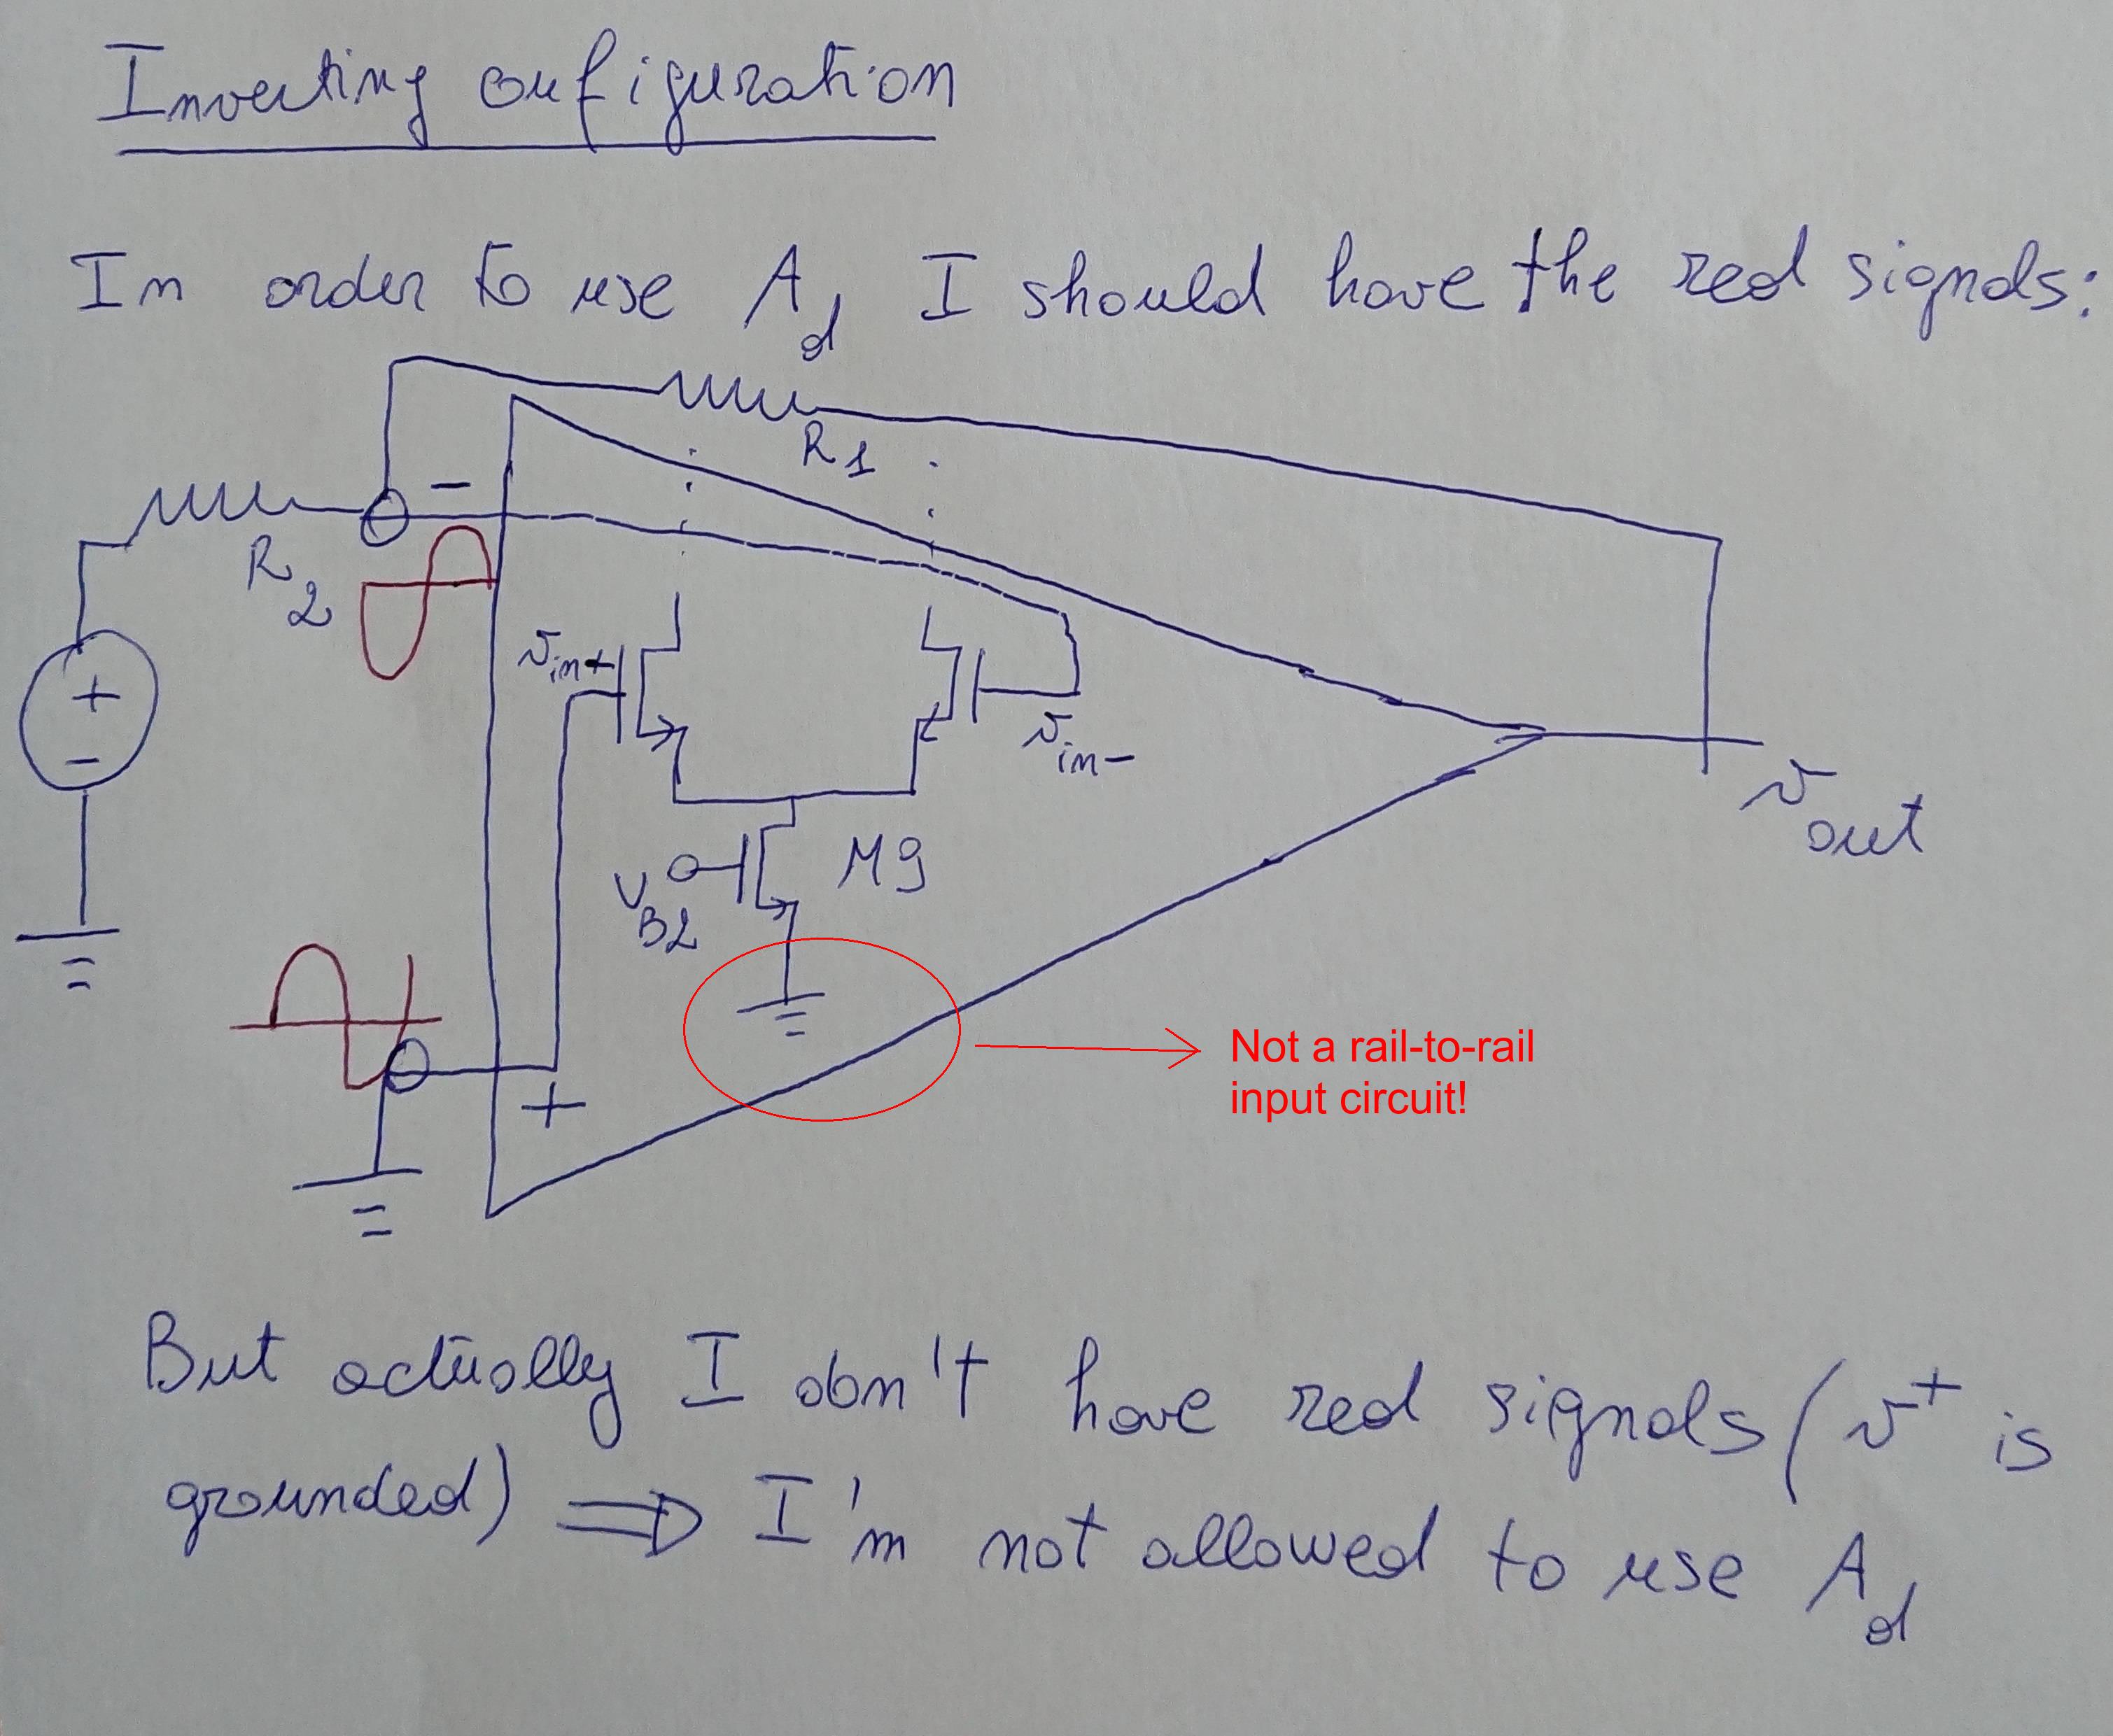 Inverting configuration
In order to use Ad I should have the red signals:
R1
-
R2
vin+
+
-
vin-
vout
M9
VB2
Not a rail-to-rail
input circuit!
+
But actually I don't have red signals (v+ is
grounded) ⇒ I'm not allowed to use Ad